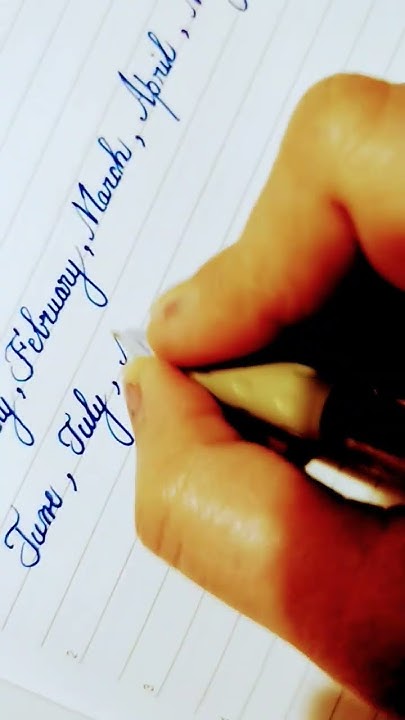 February, March, April,
June, July,
2
3